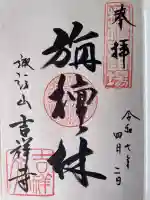 奉拝
令和六年
四月二日
旃檀林
諏訪山
吉祥寺